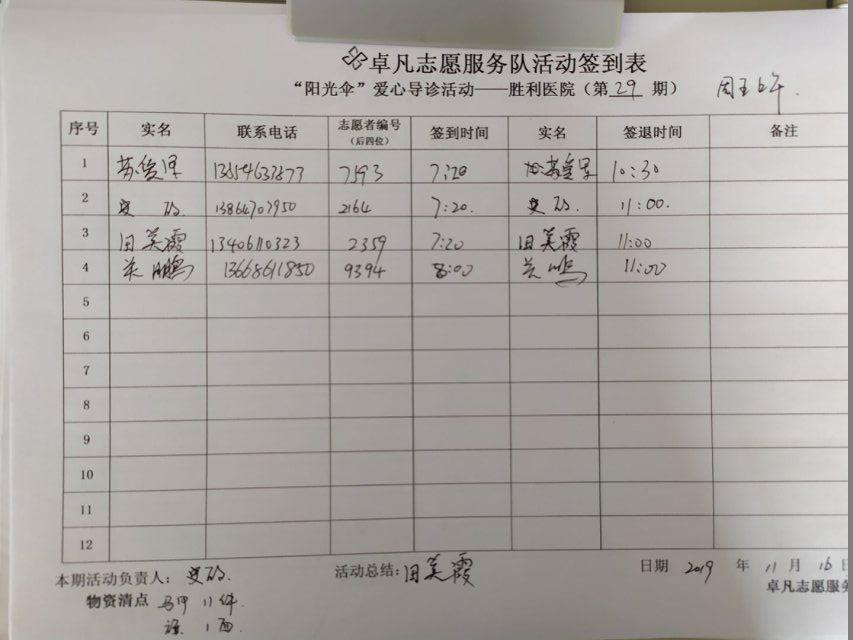 卓凡志愿服务队活动签到表
“阳光伞”爱心导诊活动——胜利医院（第29期） 周五上午.
序号 实名 联系电话 志愿者编号（后四位） 签到时间 实名 签退时间 备注
1 苏俊泽 7593 7:20 10:30
2 13864707950 2164 7:20. 11:00.
3 田美霞 13406110323 2359 7:20 田美霞 11:00
4 13668611850 9394 8:00 11:00
5
6
7
8
9
10
11
12
本期活动负责人： 活动总结：田美霞 日期 2019 年 11 月 16 日
物资清点 马甲 11件 卓凡志愿服务
旗 1面